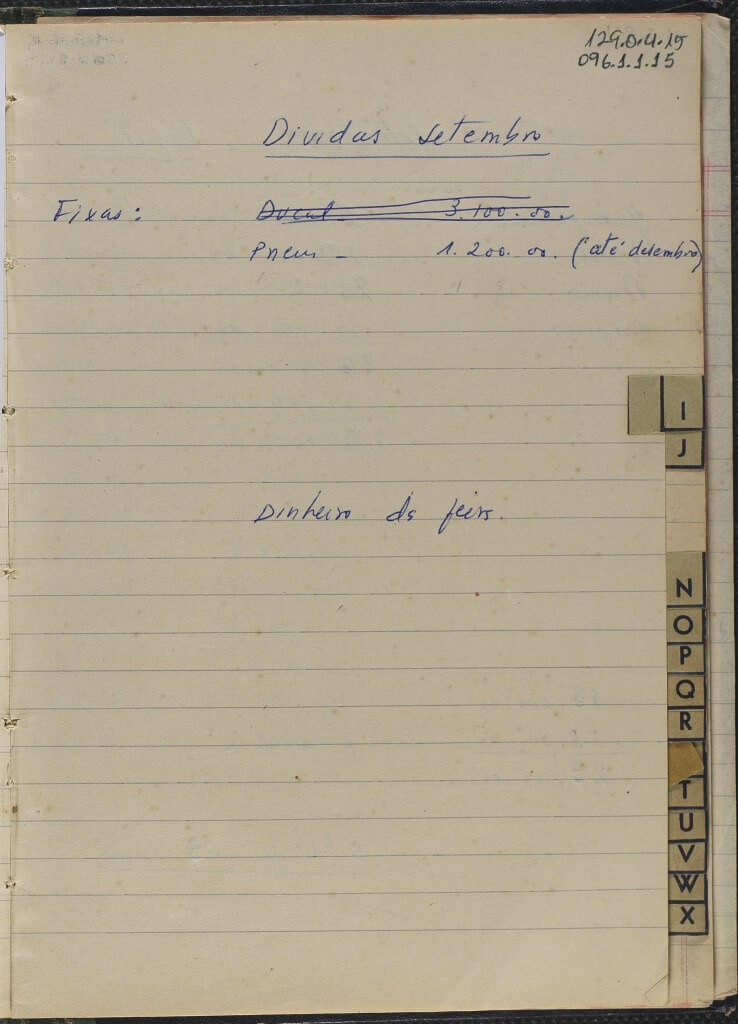 129.0.4.15
096.1.1.15
Dividas setembro
Fixas: Ducal 3.100.00.
Pneus - 1.200.00. (até desembro)
I
J
Dinheiro da feira.
N
O
P
Q
R
T
U
V
W
X